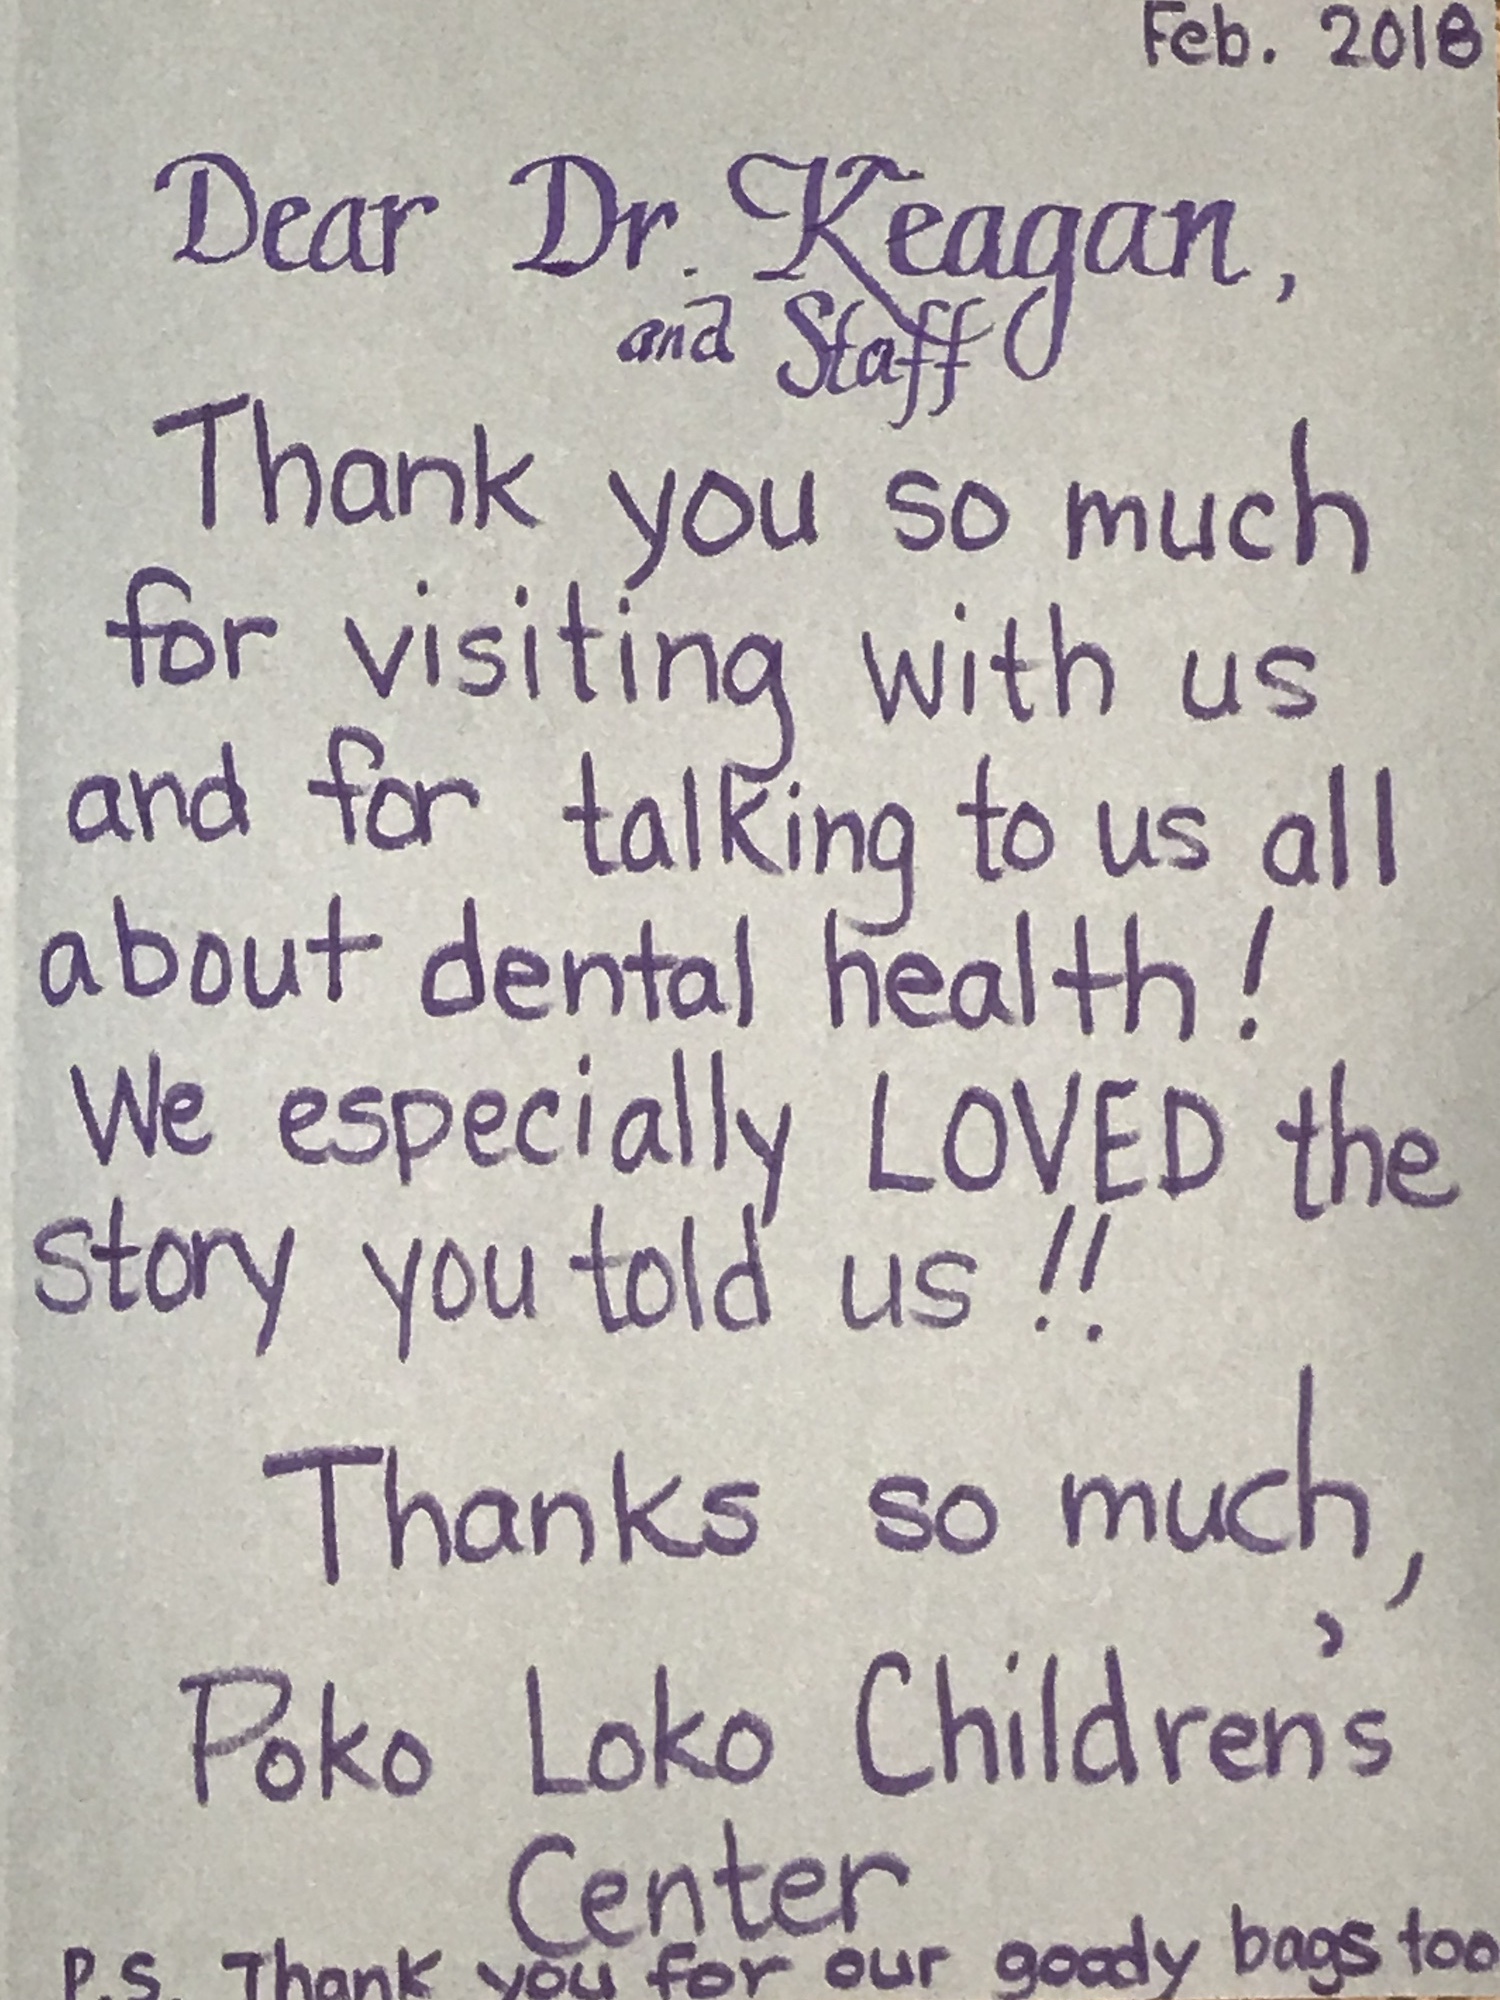 Feb. 2018
Dear Dr. Keagan,
and Staff
Thank you so much
for visiting with us
and for talking to us all
about dental health!
We especially LOVED the
story you told us!!
Thanks so much,
Poko Loko Children's
Center
P.S. Thank you for our goody bags too